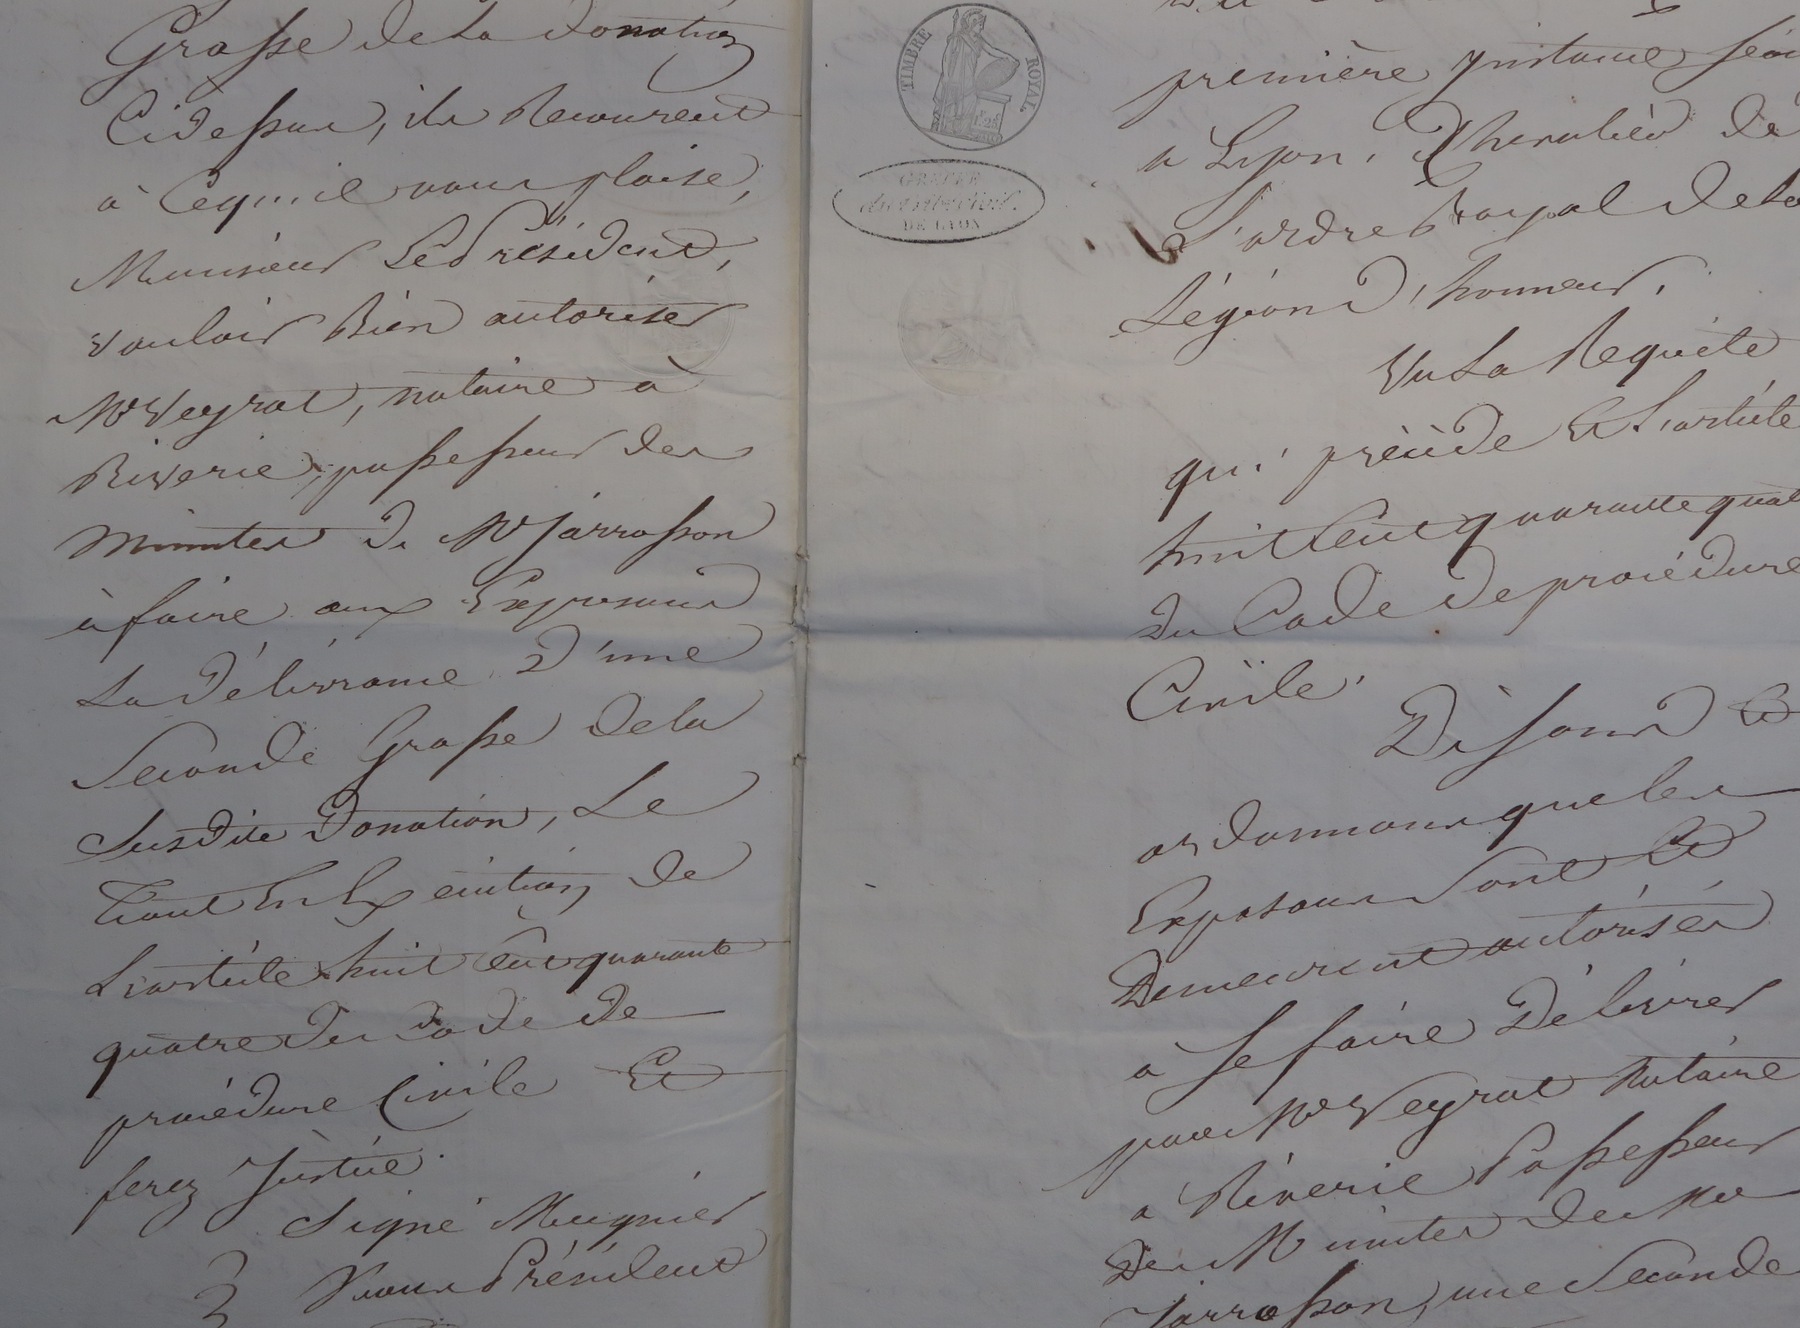 Grosse de la donation
Cidessus, ils Recourent
à Cequ'il vous plaise,
Monsieur Le Président,
vouloir Bien autoriser
Me Veyrat, notaire à
Riverie, possesseur des
minutes de Me Jarrosson
à faire aux Exposans
La Délivrance D'une
Seconde Grosse de la
Susdite Donation, Le
tout En Exécution de
L'article huit Cent quarante
quatre du Code de
procédure Civile Et
ferez Justice.
Signé Mugnier
Nous Président
TIMBRE ROYAL
GREFFE
DE LYON
première instance séan
a Lyon, Chevalier de
L'ordre Royal de La
Légion D'honneur,
Vu La Requête
qui précède Et L'article
huit Cent quarante quat
du Code de procédure
Civile.
Disons Et
ordonnons que les
Exposans Sont Et
Demeurent autorisés
à se faire Délivrer
par Me Veyrat Notaire
a Riverie Possesseur
Des Minutes de Me
Jarrosson, une Seconde